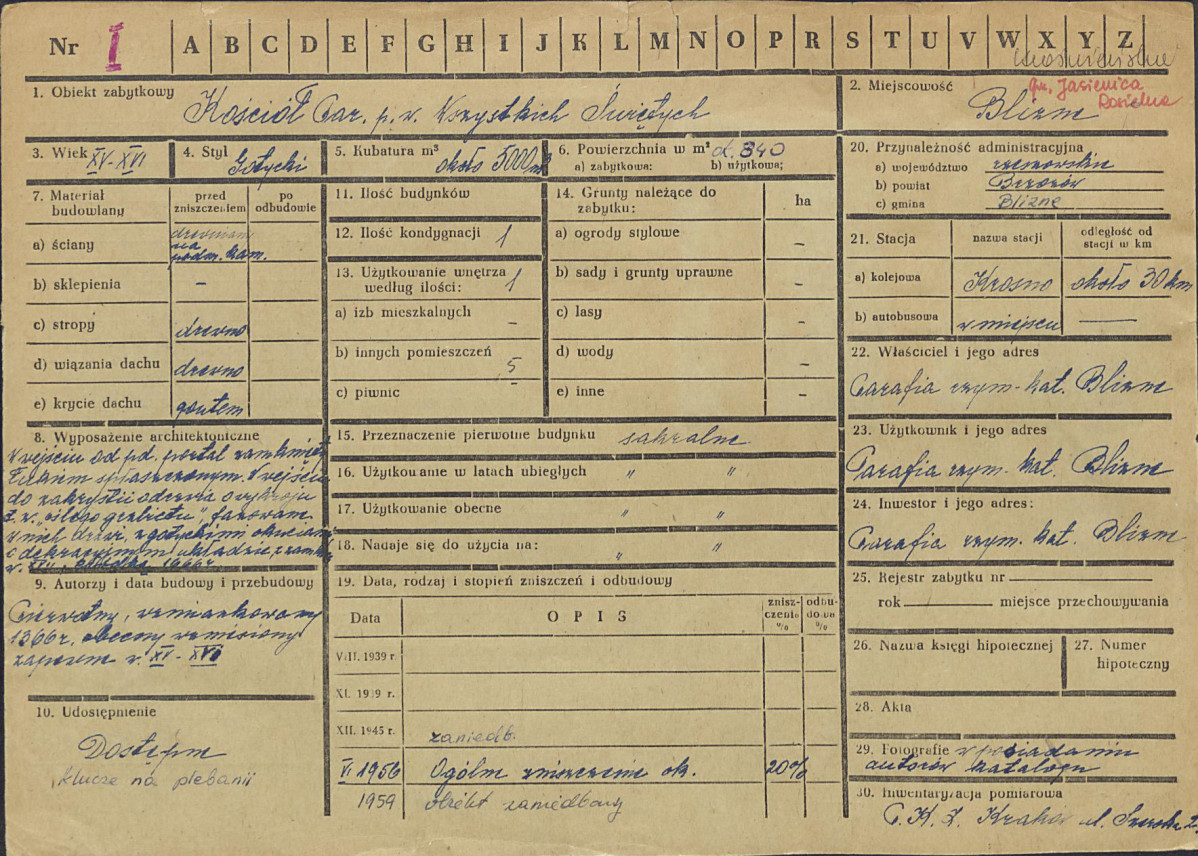 Nr I A B C D E F G H I J K L M N O P R S T U V W X Y Z
1. Obiekt zabytkowy
Kościół Par. p. w. Wszystkich Świętych
2. Miejscowość
gm. Jasienica
Rosielna
Blizne
3. Wiek XV-XVI
4. Styl Gotycki
5. Kubatura m³ około 5000 m³
6. Powierzchnia w m² 340
a) zabytkowa: b) użytkowa:
7. Materiał budowlany
przed zniszczeniem
po odbudowie
a) ściany
drewniane
na
podm. kam.
b) sklepienia –
c) stropy drewno
d) wiązania dachu drewno
e) krycie dachu gontem
8. Wyposażenie architektoniczne
W wejściu od pd. portal zamknięty
łukiem spłaszczonym. W wejściu
do zakrystii odrzwia o wykroju
t. zw. "oślego grzbietu" fazowane
w nich drzwi z gotyckimi okuciami
o dekoracyjnym układzie, z zamkiem
9. Autorzy i data budowy i przebudowy
Pierwotny, wzmiankowany
1366 r. obecny wzniesiony
zapewne w. XV - XVI
10. Udostępnienie
Dostępne
klucze na plebanii
11. Ilość budynków
12. Ilość kondygnacji 1
13. Użytkowanie wnętrza według ilości: 1
a) izb mieszkalnych –
b) innych pomieszczeń 5
c) piwnic
14. Grunty należące do zabytku:
ha
a) ogrody stylowe –
b) sady i grunty uprawne –
c) lasy –
d) wody –
e) inne –
15. Przeznaczenie pierwotne budynku sakralne
16. Użytkowanie w latach ubiegłych " "
17. Użytkowanie obecne " "
18. Nadaje się do użycia na: " "
19. Data, rodzaj i stopień zniszczeń i odbudowy
Data
O P I S
zniszczenia %
odbudowa %
VIII. 1939 r.
XI. 1939 r.
XII. 1945 r. zaniedb.
VI 1956 Ogólne zniszczenie ok. 20%
1959 obiekt zaniedbany
20. Przynależność administracyjna
a) województwo rzeszowskie
b) powiat Brzozów
c) gmina Blizne
21. Stacja
nazwa stacji
odległość od stacji w km
a) kolejowa Krosno około 30 km
b) autobusowa w miejscu —
22. Właściciel i jego adres
Parafia rzym.-kat. Blizne
23. Użytkownik i jego adres
Parafia rzym. kat. Blizne
24. Inwestor i jego adres:
Parafia rzym. kat. Blizne
25. Rejestr zabytku nr
rok miejsce przechowywania
26. Nazwa księgi hipotecznej
27. Numer hipoteczny
28. Akta
29. Fotografie w posiadaniu
autorów katalogu
30. Inwentaryzacja pomiarowa
Kraków ul.